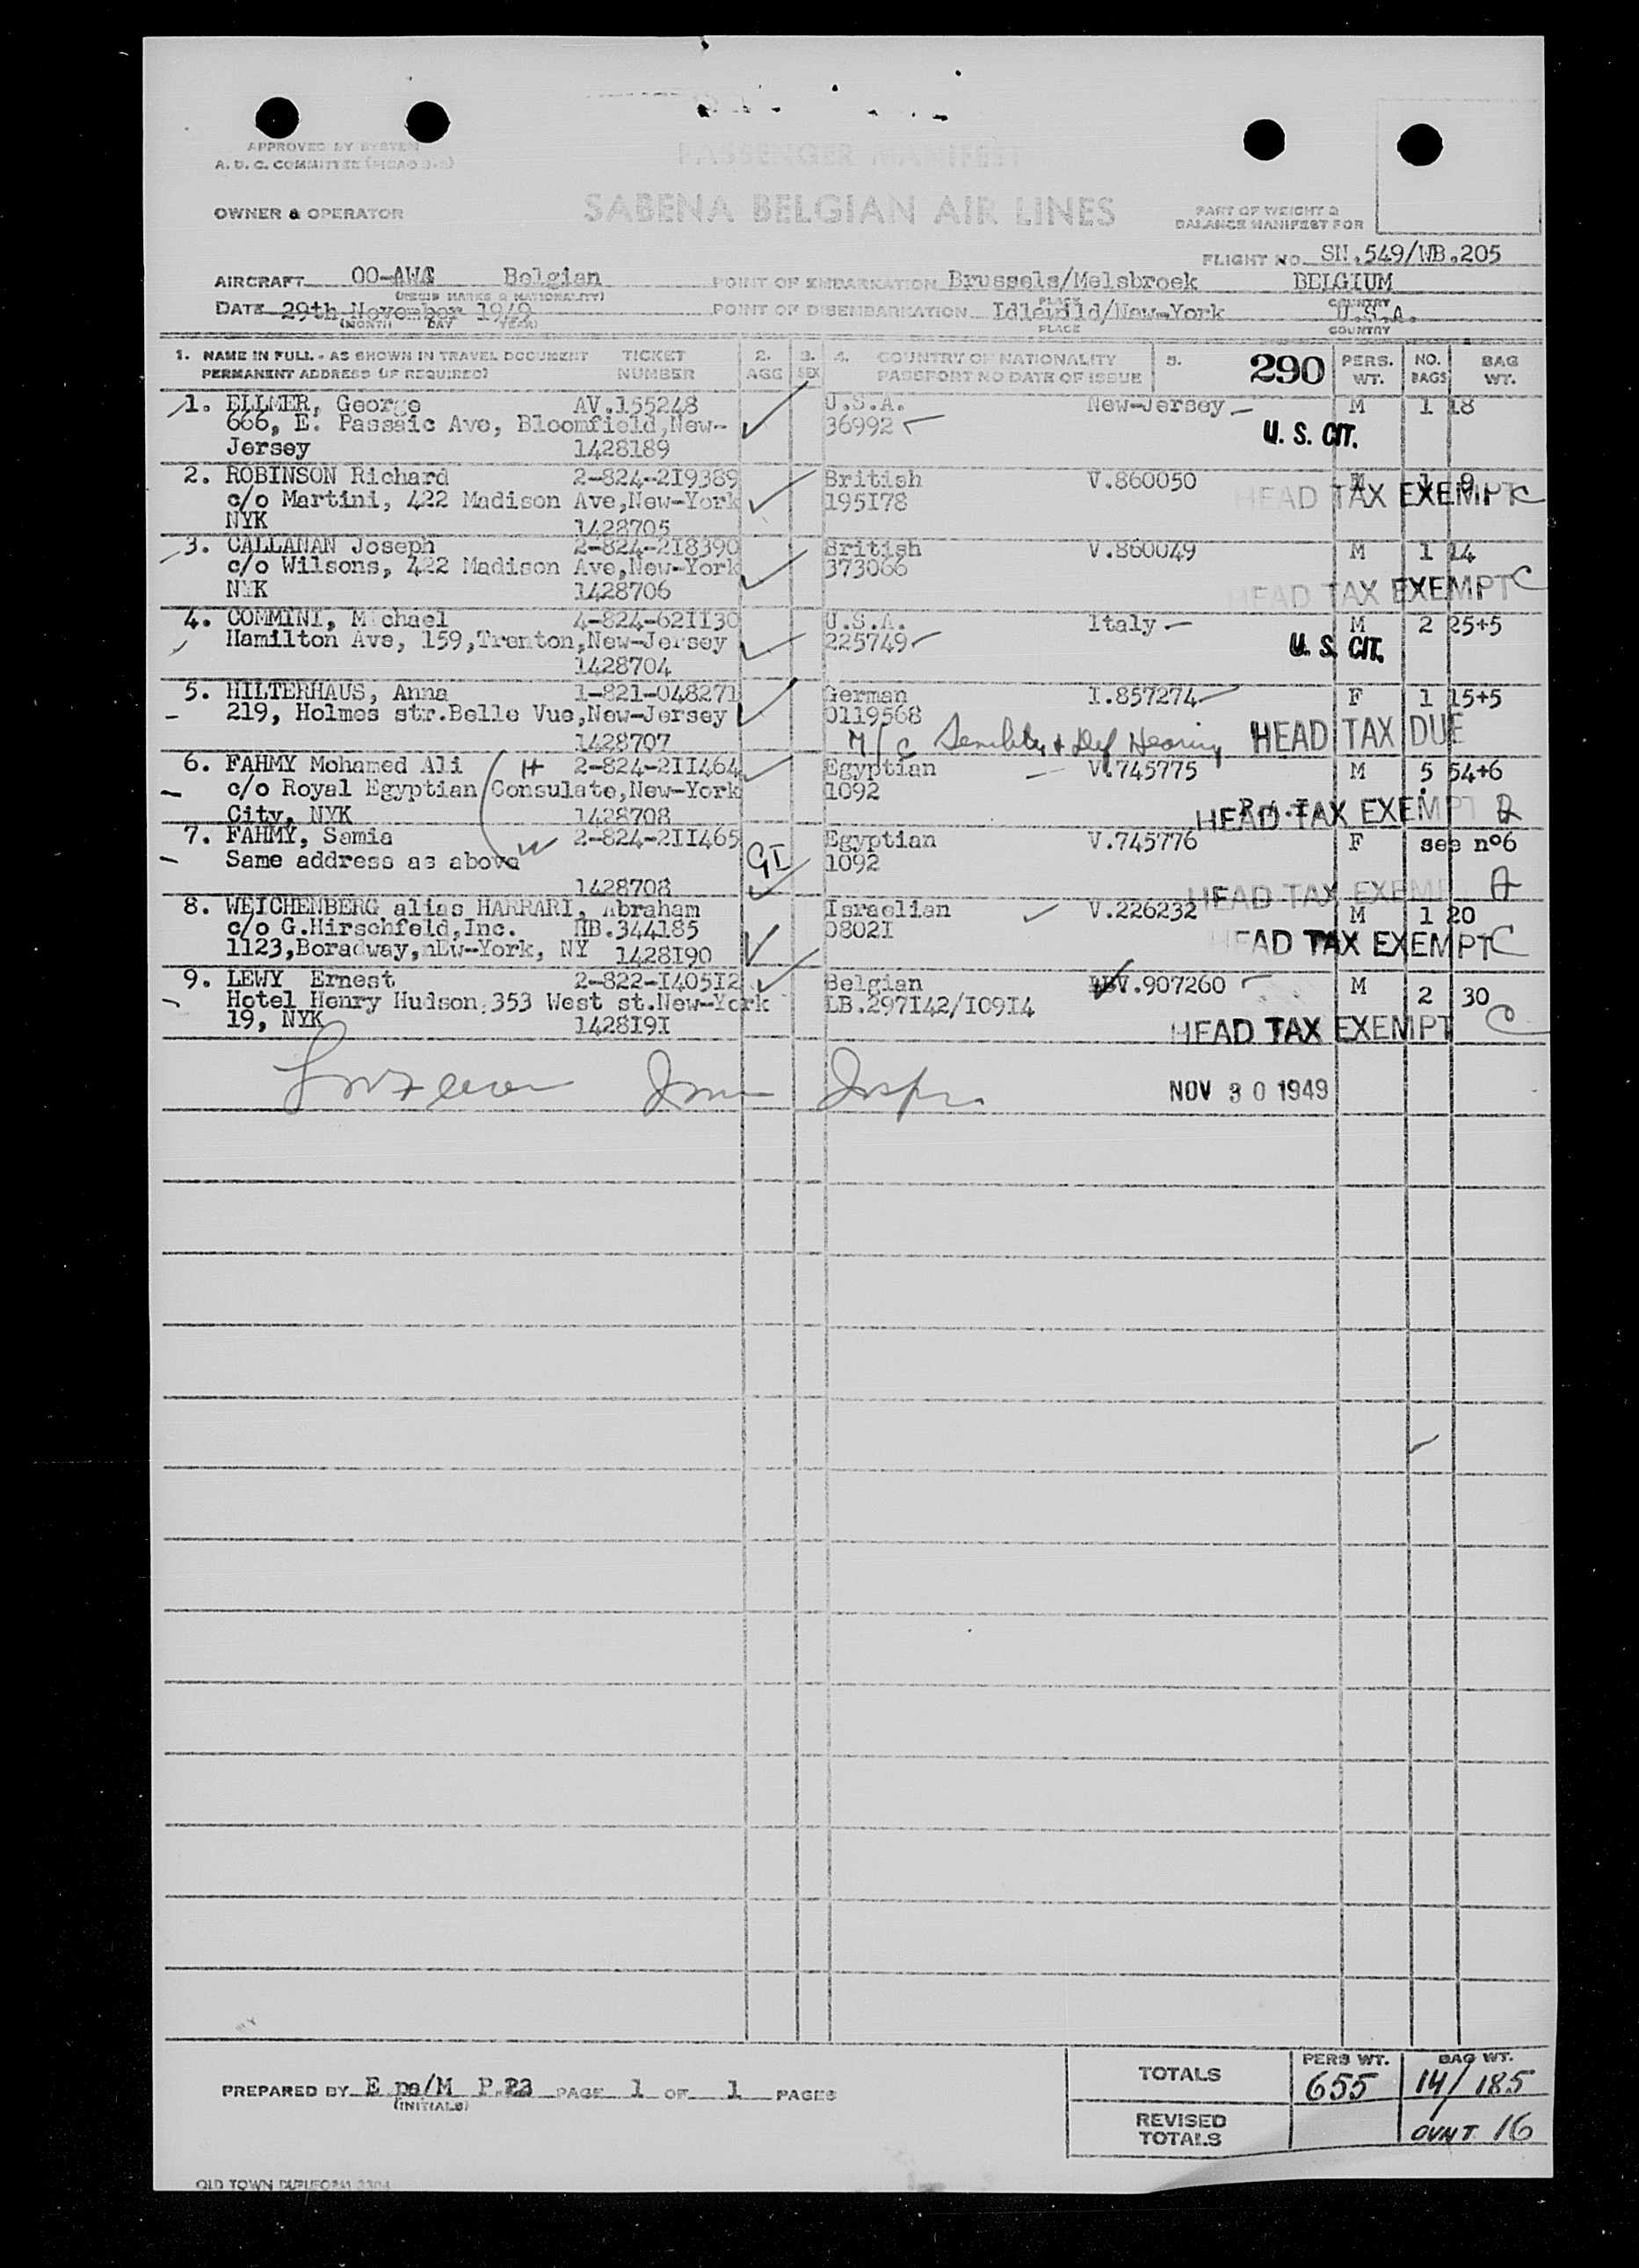 APPROVED BY SYSTEM
A. D. C. COMMITTEE
PASSENGER MANIFEST
SABENA BELGIAN AIR LINES
OWNER & OPERATOR
PART OF WEIGHT &
BALANCE MANIFEST FOR
FLIGHT NO. SN.549/WB.205
AIRCRAFT OO-AWG Belgian POINT OF EMBARKATION Brussels/Melsbroek BELGIUM
(REGIS MARKS & NATIONALITY) PLACE COUNTRY
DATE 29th November 1949 POINT OF DISEMBARKATION Idlewild/New-York U.S.A.
(MONTH DAY YEAR) PLACE COUNTRY
1. NAME IN FULL - AS SHOWN IN TRAVEL DOCUMENT TICKET 2. 3. 4. COUNTRY OF NATIONALITY 5. 290 PERS. NO. BAG
PERMANENT ADDRESS (IF REQUIRED) NUMBER AGE SEX PASSPORT NO DATE OF ISSUE WT. BAGS WT.
1. ELLMER, George AV.155248 U.S.A. New-Jersey M 1 18
666, E. Passaic Ave, Bloomfield,New- 36992 U. S. CIT.
Jersey 1428189
2. ROBINSON Richard 2-824-219389 British V.860050 M 1 9
c/o Martini, 422 Madison Ave,New-York 195I78 HEAD TAX EXEMPT C
NYK 1428705
3. CALLANAN Joseph 2-824-218390 British V.860049 M 1 14
c/o Wilsons, 422 Madison Ave,New-York 373066
NYK 1428706 HEAD TAX EXEMPT C
4. COMMINI, Michael 4-824-62II30 U.S.A. Italy M 2 25+5
Hamilton Ave, 159,Trenton,New-Jersey 225749 U. S. CIT.
1428704
5. HILTERHAUS, Anna 1-821-048271 German I.857274 F 1 15+5
219, Holmes str.Belle Vue,New-Jersey 0119568 HEAD TAX DUE
1428707 M/C Senility & Def Hearing
6. FAHMY Mohamed Ali H 2-824-2II464 Egyptian V.745775 M 5 54+6
c/o Royal Egyptian Consulate,New-York 1092
City, NYK 1428708 HEAD TAX EXEMPT
7. FAHMY, Samia W 2-824-2II465 Egyptian V.745776 F see nº6
Same address as above GI 1092
1428708 HEAD TAX EXEMPT A
8. WEICHENBERG alias HARRARI, Abraham Israelian V.226232 M 1 20
c/o G.Hirschfeld,Inc. HB.344185 0802I HEAD TAX EXEMPT C
1123,Boradway,nEw-York, NY 1428I90
9. LEWY Ernest 2-822-I405I2 Belgian V.907260 M 2 30
Hotel Henry Hudson,353 West st.New-York LB.297I42/I09I4
19, NYK 1428I9I HEAD TAX EXEMPT C
NOV 30 1949
TOTALS PERS WT. 655 BAG WT. 14/185
PREPARED BY PAGE 1 OF 1 PAGES
(INITIALS)
REVISED TOTALS OVNT 16
OLD TOWN